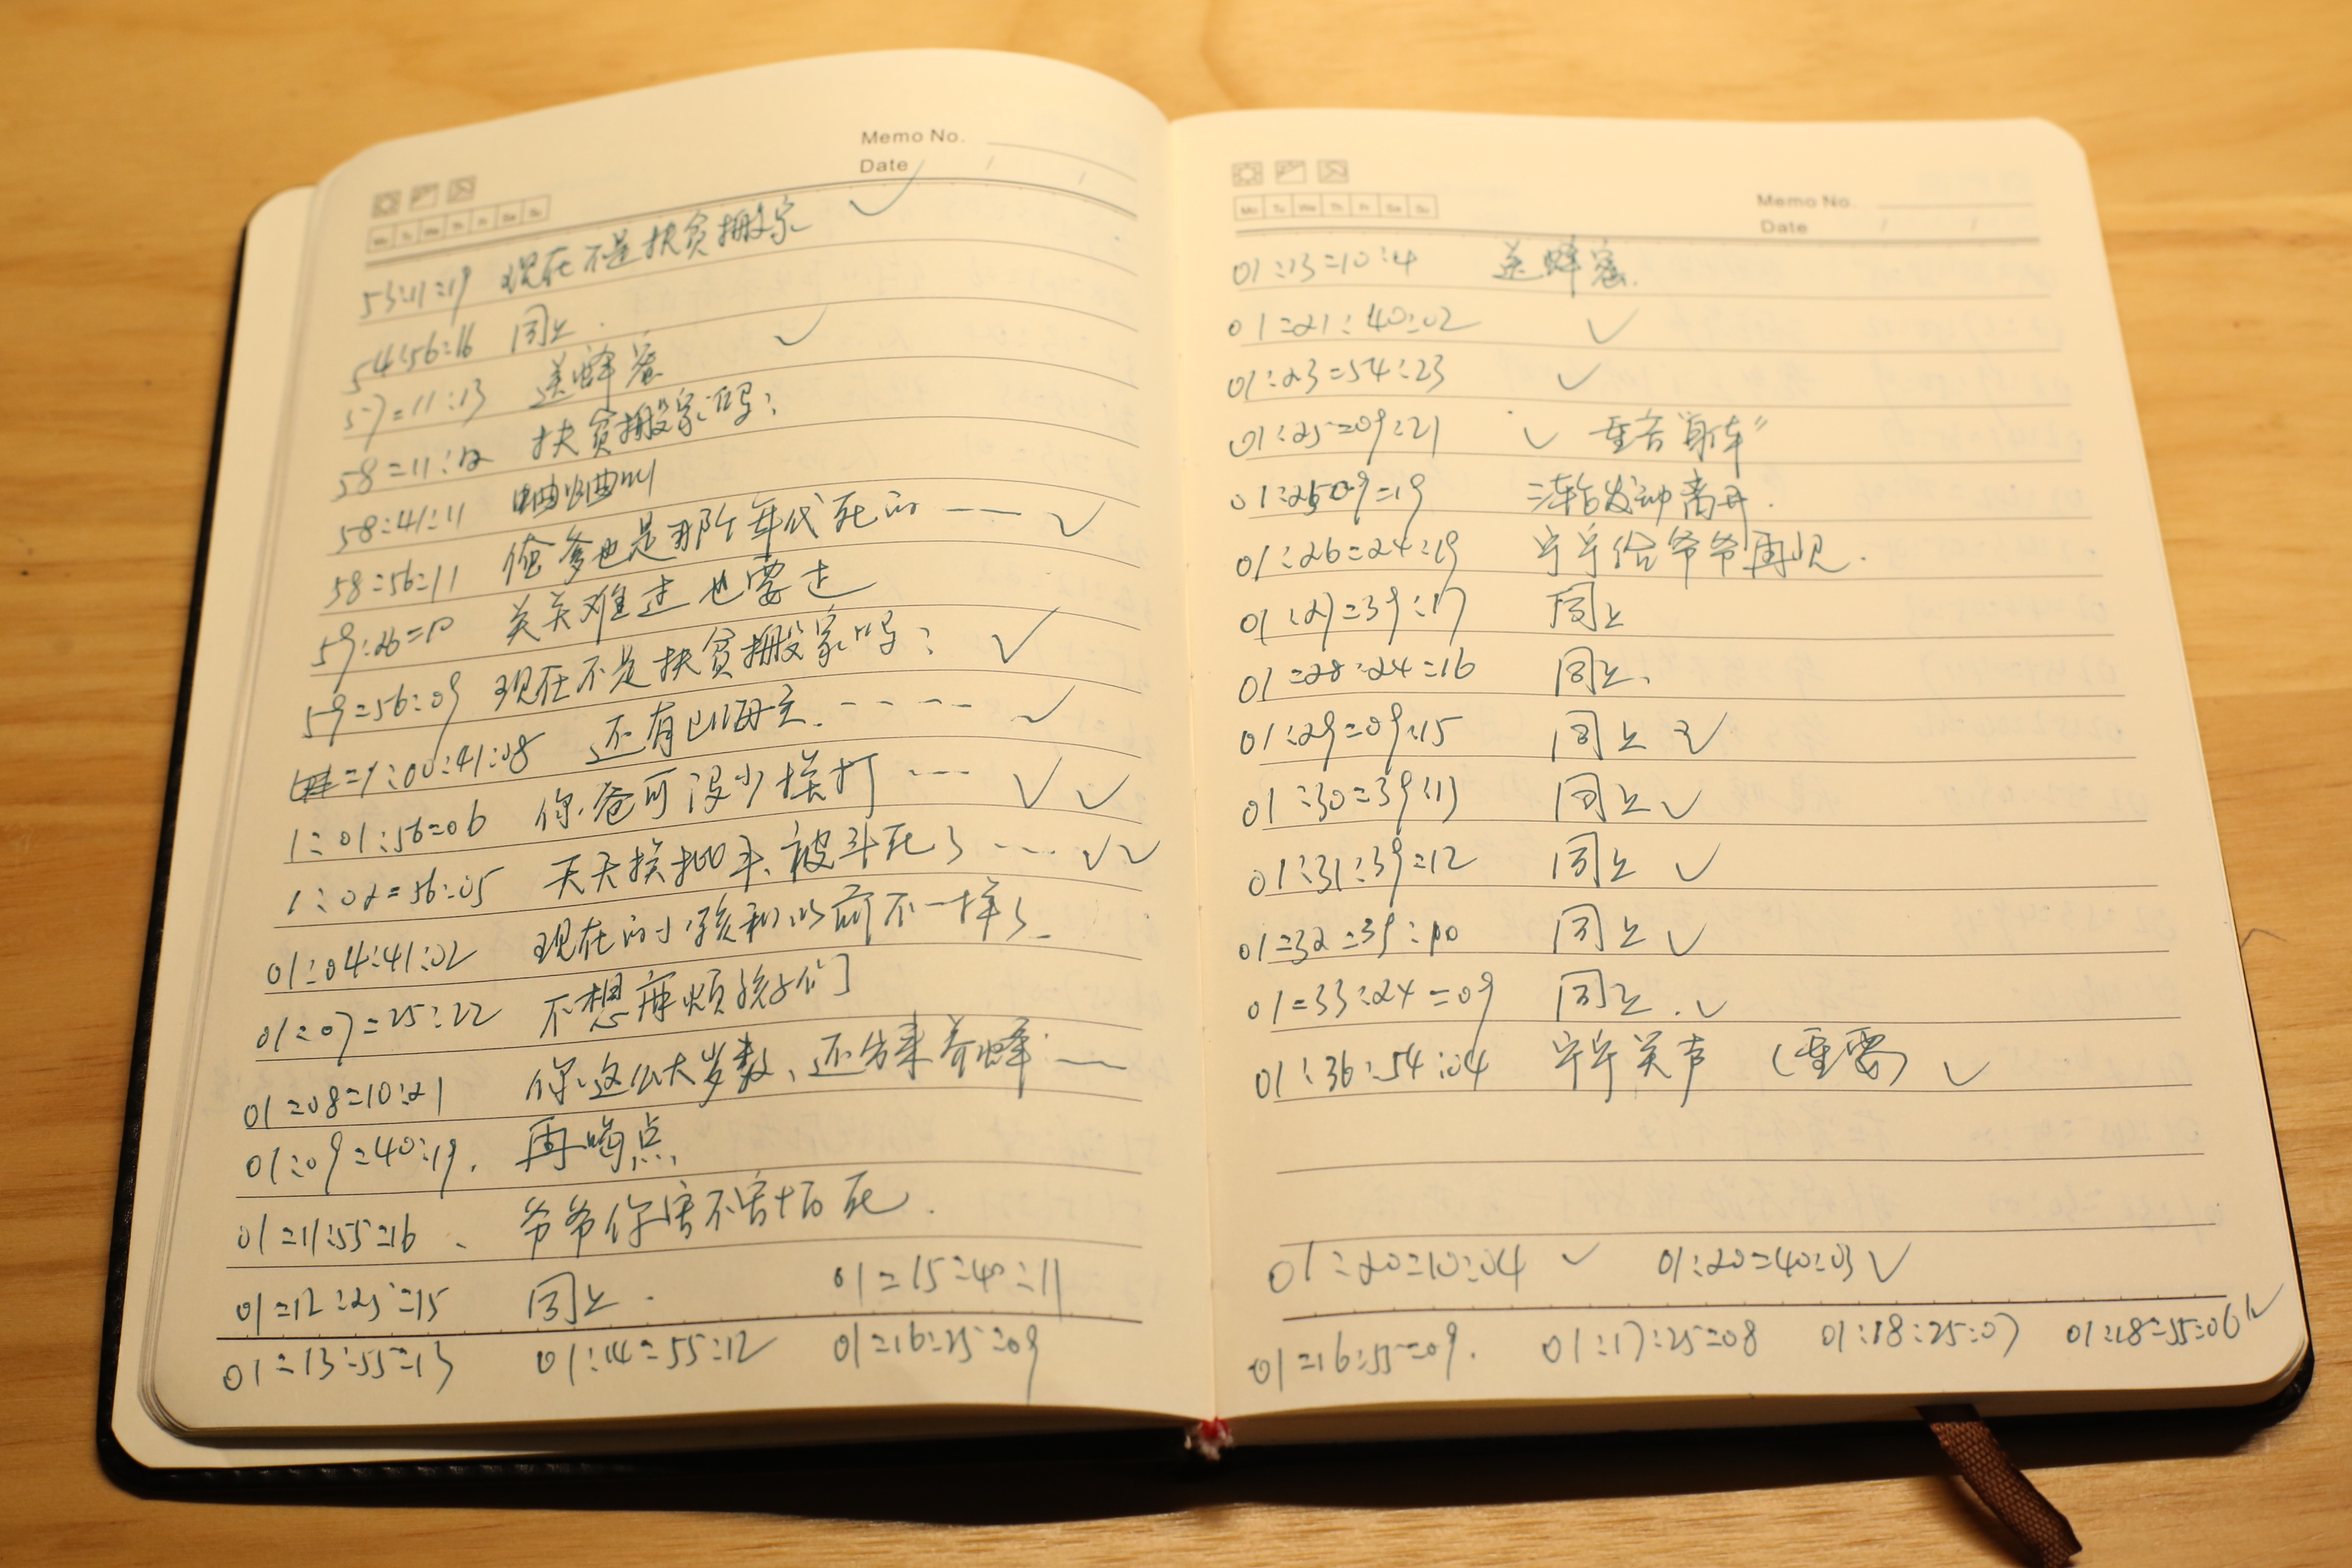 Memo No.
Date / /
Mo Tu We Th Fr Sa Su
53:11:19 现在不是扶贫搬家 ✓
54:56:16 同上.
57:11:13 送蜂蜜 ✓
58:11:12 扶贫搬家吗?
58:41:11 蛐蛐叫
58:56:11 俺爹也是那个年代死的 --- ✓
59:26:10 关关难过也要过
59:56:09 现在不是扶贫搬家吗? ✓
1:00:41:08 还有 ---- ✓
1:01:56:06 你爸可没少挨打 --- ✓ ✓
1:02:56:05 天天挨批斗、被斗死了 --- ✓✓
01:04:41:02 现在的小孩和以前不一样了
01:07:25:22 不想麻烦孩子们
01:08:10:21 你这么大岁数、还出来养蜂 --
01:09:40:19. 再喝点
01:11:55:16、 爷爷你害不害怕死.
01:12:25:15 同上. 01:15:40:11
01:13:55:13 01:14:55:12 01:16:25:09
Memo No.
Date / /
Mo Tu We Th Fr Sa Su
01:13:10:4 送蜂蜜.
01:21:40:02 ✓
01:23:54:23 ✓
01:25:09:21 ✓
01:25:09:19 三轮发动离开.
01:26:24:19 宁宁给爷爷再见.
01:27:39:17 同上
01:28:24:16 同上、
01:29:09:15 同上 ✓
01:30:39:13 同上 ✓
01:31:39:12 同上 ✓
01:32:39:10 同上 ✓
01:33:24:09 同上. ✓
01:36:54:04 宁宁关声 (重要) ✓
01:20:10:04 ✓ 01:20:40:03 ✓
01:16:55:09. 01:17:25:08 01:18:25:07 01:18:55:06 ✓